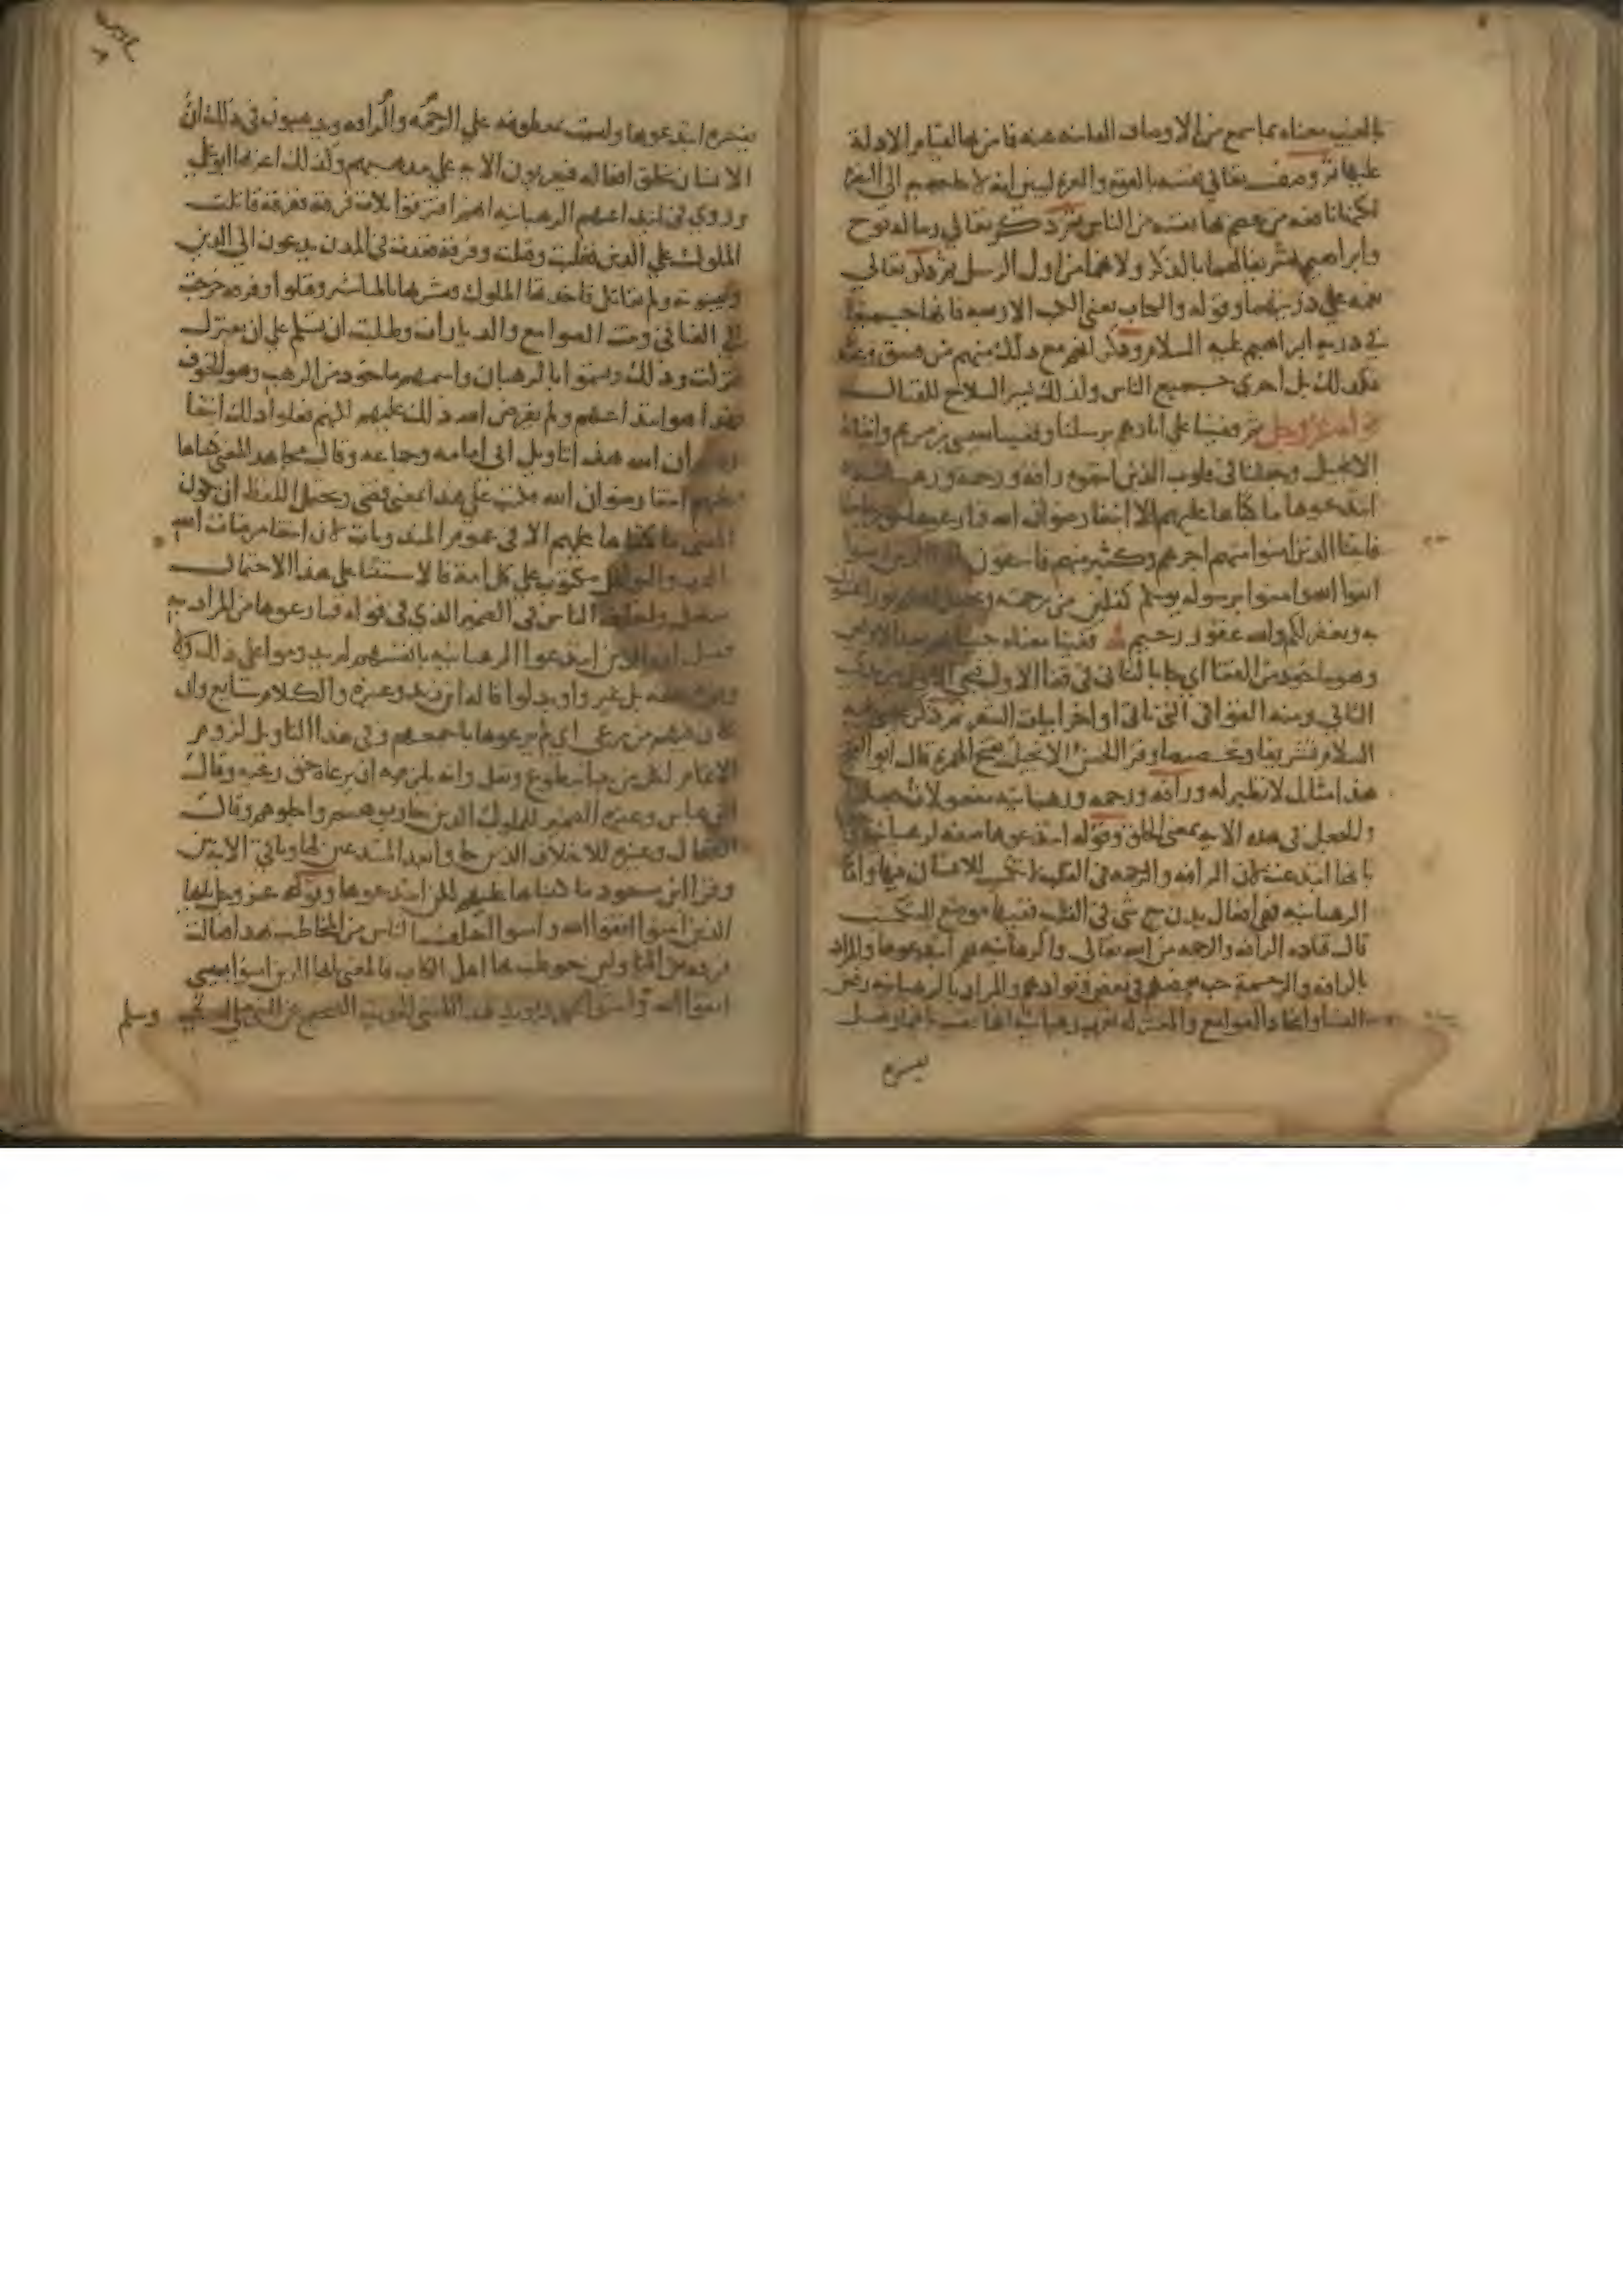 بالغيب معناه بما سمع من الاوصاف الغائبة عنه فامن بها لقيام الادلة
عليها ثم وصف تعالى نفسه بالقوة والعزة ليبين انه لا حاجة به الى النصرة
لكنها نافعة من عصم بها نفسه من الناس ثم ذكر تعالى رسالة نوح
وابراهيم تشريفا لهما بالذكر ولانهما من اول الرسل ثم ذكر تعالى
نعمه على ذريتهما وقوله والكتاب يعني الكتب الاربعة فانها جميعا
في ذرية ابراهيم عليه السلام وذكر انهم مع ذلك منهم من فسق وعند
فكذلك بل احرى جميع الناس ولذلك يسر السلاح للقتال
عز وجل ثم قفينا على اثارهم برسلنا وقفينا بعيسى بن مريم واتيناه
الانجيل وجعلنا في قلوب الذين اتبعوه رافة ورحمة ورهبانية
ابتدعوها ما كتبناها عليهم الا ابتغا رضوان الله فما رعوها حق رعايتها
فاتينا الذين امنوا منهم اجرهم وكثير منهم فاسقون
اتقوا الله وامنوا برسوله يوتكم كفلين من رحمته ويجعل لكم نورا تمشون
به ويغفر لكم والله غفور رحيم قفينا معناه جينا بهم بعد الاولين
وهو ماخوذ من القفا اي جا بالثاني في قفا الاول
الثاني ومنه القوافي التي تاتي اواخر ابيات الشعر ثم ذكر عيسى عليه
السلام تشريفا وتخصيصا وقرا الحسن الانجيل بفتح الهمزة قال ابو الفتح
هذا مثال لا نظير له ورافة ورحمة ورهبانية مفعولات جعلنا
والجعل في هذه الاية بمعنى الخلق وقوله ابتدعوها صفة لرهبانية
بانها ابتدعت لان الرافة والرحمة في القلب لا تكسب للانسان فيها واما
الرهبانية فهي افعال بدن مع شي في القلب ففيها موضع للتكسب
قال قتادة الرافة والرحمة من الله تعالى والرهبانية هم ابتدعوها والمراد
بالرافة والرحمة حب بعضهم في بعض وتوادهم والمراد بالرهبانية رفض
النسا واتخاذ الصوامع والمعتزلة تعرب رهبانية انها نصب باضمار فعل
يفسره
يفسره ابتدعوها وليست بمعطوفة على الرحمة والرافة ويذهبون في ذلك ان
الانسان يخلق افعاله فيعربون الاية على مذهبهم وكذلك اعربها ابو علي
وروي في ابتداعهم الرهبانية انهم افترقوا ثلاث فرق ففرقة قاتلت
الملوك على الدين فغلبت وقتلت وفرقة قعدت في المدن يدعون الى الدين
ويبينونه ولم تقاتل فاخذها الملوك ونشروها بالمناشر وقتلوا وفرقة خرجت
الى الفيافي وبنت الصوامع والديارات وطلبت ان تسلم على ان تعتزل
فتركت وذلك وتسموا بالرهبان واسمهم ماخوذ من الرهب وهو الخوف
فهذا هو ابتداعهم ولم يفرض الله ذلك عليهم لكنهم فعلوا ذلك ابتغا
رضوان الله هذا تاويل ابي امامة وجماعة وقال مجاهد المعنى كتبناها
عليهم ابتغا رضوان الله فكتب على هذا بمعنى قضى ويحتمل اللفظ ان يكون
المعنى ما كتبناها عليهم الا في عموم المندوبات لان ابتغا مرضات الله
بالقرب والنوافل مكتوب على كل امة فالاستثنا على هذا الاحتمال
متصل واختلف الناس في الضمير الذي في قوله فما رعوها من المراد به
فقيل ان الذين ابتدعوا الرهبانية بانفسهم لم يدوموا على ذلك ولا
وفوه حقه بل غيروا وبدلوا قاله ابن زيد وغيره والكلام سايغ وان
كان فيهم من رعى اي لم يرعوها باجمعهم وفي هذا التاويل لزوم
الاتمام لكل من بدا بتطوع ونفل وانه يلزمه ان يرعاه حق رعيه وقال
ابن عباس وغيره الضمير للملوك الذين حاربوهم واجلوهم وقال
الضحاك وغيره للاخلاف الذين جاوا بعد المبتدعين لها وباقي الاية بين
وقرا ابن مسعود ما كتبناها عليهم لكن ابتدعوها وقوله عز وجل يا ايها
الذين امنوا اتقوا الله وامنوا اختلف الناس من المخاطب بهذا فقالت
فرقة من المتاولين خوطب بها اهل الكتاب فالمعنى يا ايها الذين امنوا بعيسى
اتقوا الله وامنوا بمحمد ويويد هذا المعنى الحديث الصحيح عن النبي صلى الله عليه وسلم